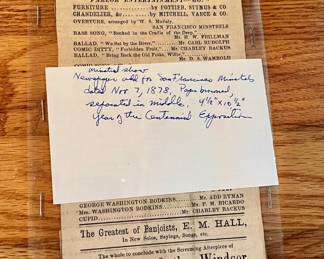 PARLOR ENTERTAINMENT
FURNITURE by POTTIER, STYMUS & CO
CHANDELIER, &c. by MITCHELL, VANCE & CO.
OVERTURE, arranged by W. S. Mullaly,
SAN FRANCISCO MINSTRELS
BASS SONG, "Rocked in the Cradle of the Deep,"
Mr. H. W. FRILLMAN
BALLAD, "We Sat by the River," Mr. CARL RUDOLPH
COMIC DITTY, "Forbidden Fruit," Mr. CHARLEY BACKUS
BALLAD, "Bring Back the Old Folks, Willie,"
Mr. D. S. WAMBOLD
minstrel show
Newspaper add for "San Francisco Minstrels
dated Nov 7, 1878, Paper browned,
separated in middle, 4 1/4" x 10 1/2"
year of the Centennial Exposition
GEORGE WASHINGTON BODKINS Mr. ADD RYMAN
Mrs. WASHINGTON BODKINS Mr. F. M. RICARDO
CUPID Mr. CHARLEY BACKUS
The Greatest of Banjoists, E. M. HALL,
In New Solos, Sayings, Songs, etc.
The whole to conclude with the Screaming Afterpiece of
Windsor